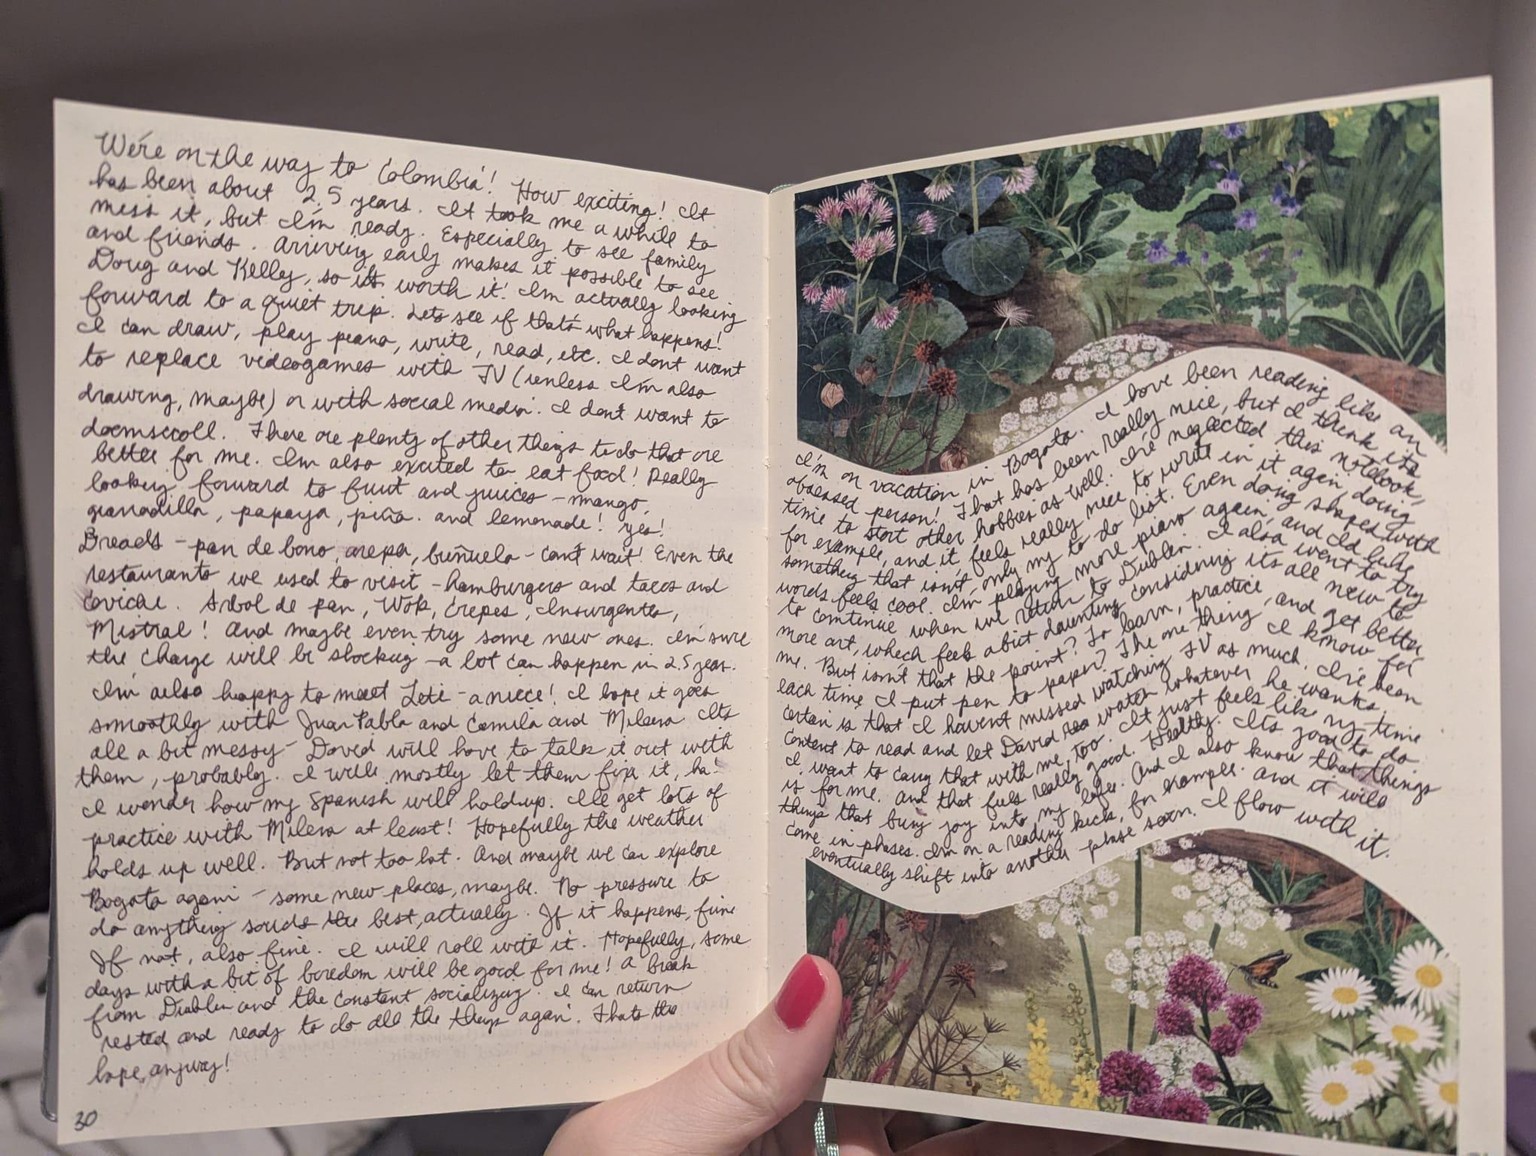 We're on the way to Colombia! How exciting! It
has been about 2.5 years. It took me a while to
miss it, but I'm ready. Especially to see family
and friends. Arriving early makes it possible to see
Doug and Kelly, so it's worth it! I'm actually looking
forward to a quiet trip. Lets see if that's what happens!
I can draw, play piano, write, read, etc. I don't want
to replace videogames with TV (unless I'm also
drawing, maybe) or with social media. I don't want to
doomscroll. There are plenty of other things to do that are
better for me. I'm also excited to eat food! Really
looking forward to fruit and juices - mango,
granadilla, papaya, piña. and lemonade! Yes!
Breads - pan de bono, arepa, buñuelo - can't wait! Even the
restaurants we used to visit - hamburgers and tacos and
ceviche. Arbol de pan, Wok, Crepes, Insurgentes,
Mistral! And maybe even try some new ones. I'm sure
the change will be shocking - a lot can happen in 2.5 years.
I'm also happy to meet Leti - a niece! I hope it goes
smoothly with Juan Pablo and Camila and Milena. Its
all a bit messy - David will have to talk it out with
them, probably. I will mostly let them fix it, ha!
I wonder how my Spanish will hold up. I'll get lots of
practice with Milena at least! Hopefully the weather
holds up well. But not too hot. And maybe we can explore
Bogota again - some new places, maybe. No pressure to
do anything sounds the best, actually. If it happens, fine
If not, also fine. I will roll with it. Hopefully, some
days with a bit of boredom will be good for me! A break
from Dublin and the constant socializing. I can return
rested and ready to do all the things again. Thats the
hope, anyway!
30
I'm on vacation in Bogota. I have been reading like an
obsessed person! That has been really nice, but I think its
time to start other hobbies as well. I've neglected this notebook,
for example, and it feels really nice to write in it again doing
something that isn't only my to do list. Even doing shapes with
words feels cool. I'm playing more piano again, and I'd like
to continue when we return to Dublin. I also want to try
more art, which feels a bit daunting considering its all new to
me. But isn't that the point? To learn, practice, and get better
each time I put pen to paper? The one thing I know for
certain is that I haven't missed watching TV as much. I've been
content to read and let David watch whatever he wants.
I want to carry that with me, too. It just feels like my time
is for me. And that feels really good. Healthy. Its good to do
things that bring joy into my life. And I also know that things
come in phases. I'm on a reading kick, for example. and it will
eventually shift into another phase soon. I flow with it.